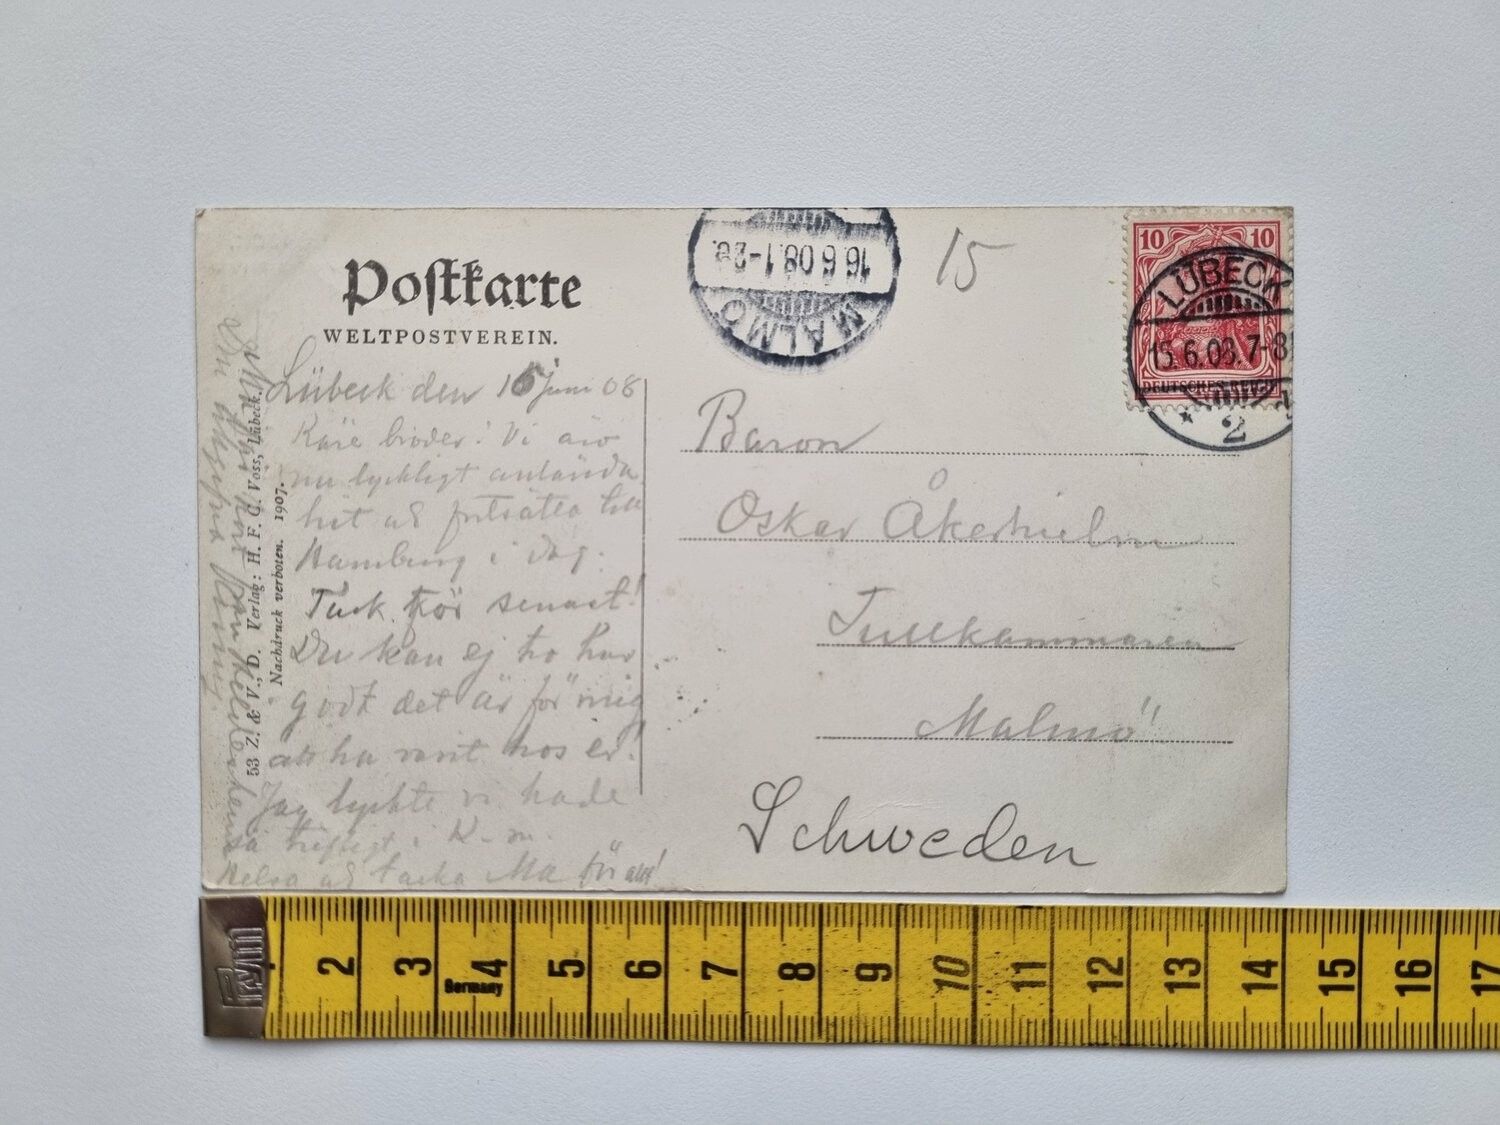 Postkarte
WELTPOSTVEREIN.
Lübeck den 15 Juni 08
Käre broder! Vi äro
nu lyckligt anlända
hit och fortsätta till
Hamburg i dag.
Tack för senast!
Du kan ej tro hur
godt det är för mig
att ha varit hos er!
Jag tyckte vi hade
så trefligt i K-m.
Helsa och tacka Ma för allt!
53 Z. & V., D. Verlag: H. F. C. Voss, Lübeck.
Nachdruck verboten. 1907.
MALMÖ
16.6.08.1-2E.
15
10 10
DEUTSCHES REICH
LÜBECK
15.6.08.7-8
* 2
Baron
Oskar Åkerhielm
Tullkammaren
Malmö
Schweden
2 3 4 5 6 7 8 9 10 11 12 13 14 15 16 17
Germany